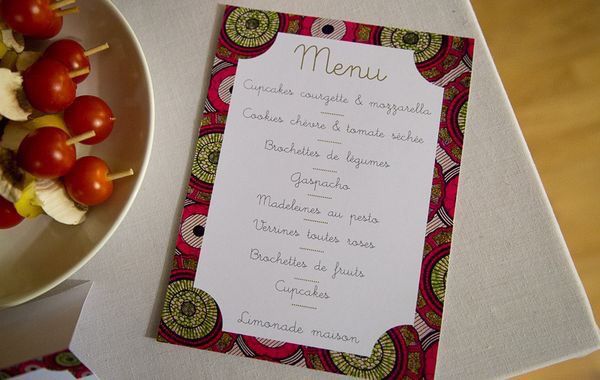 Menu
Cupcakes courgette & mozzarella
Cookies chèvre & tomate séchée
Brochettes de légumes
Gaspacho
Madeleines au pesto
Verrines toutes roses
Brochettes de fruits
Cupcakes
Limonade maison